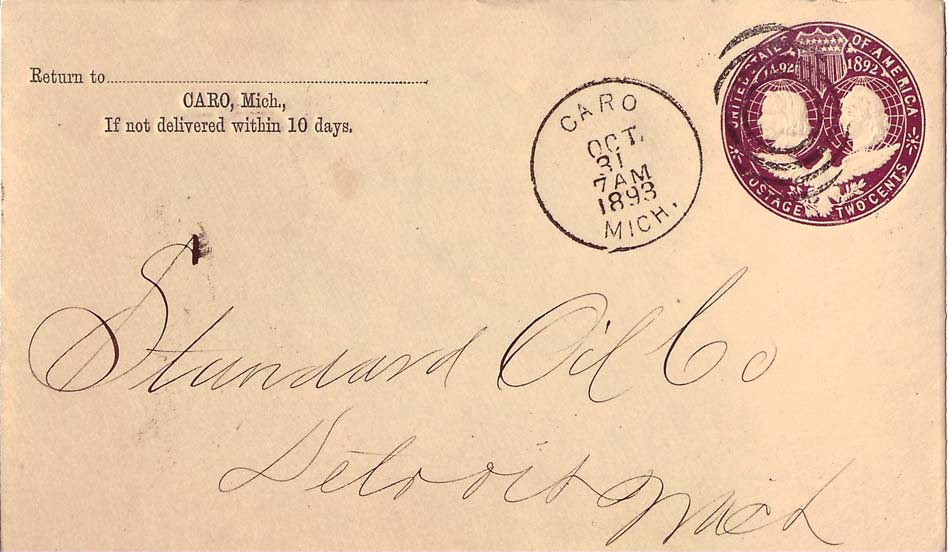 Return to
CARO, Mich.,
If not delivered within 10 days.
CARO
OCT.
31
7AM
1893
MICH.
UNITED STATES OF AMERICA
1492 1892
POSTAGE TWO CENTS
Standard Oil Co
Detroit Mich